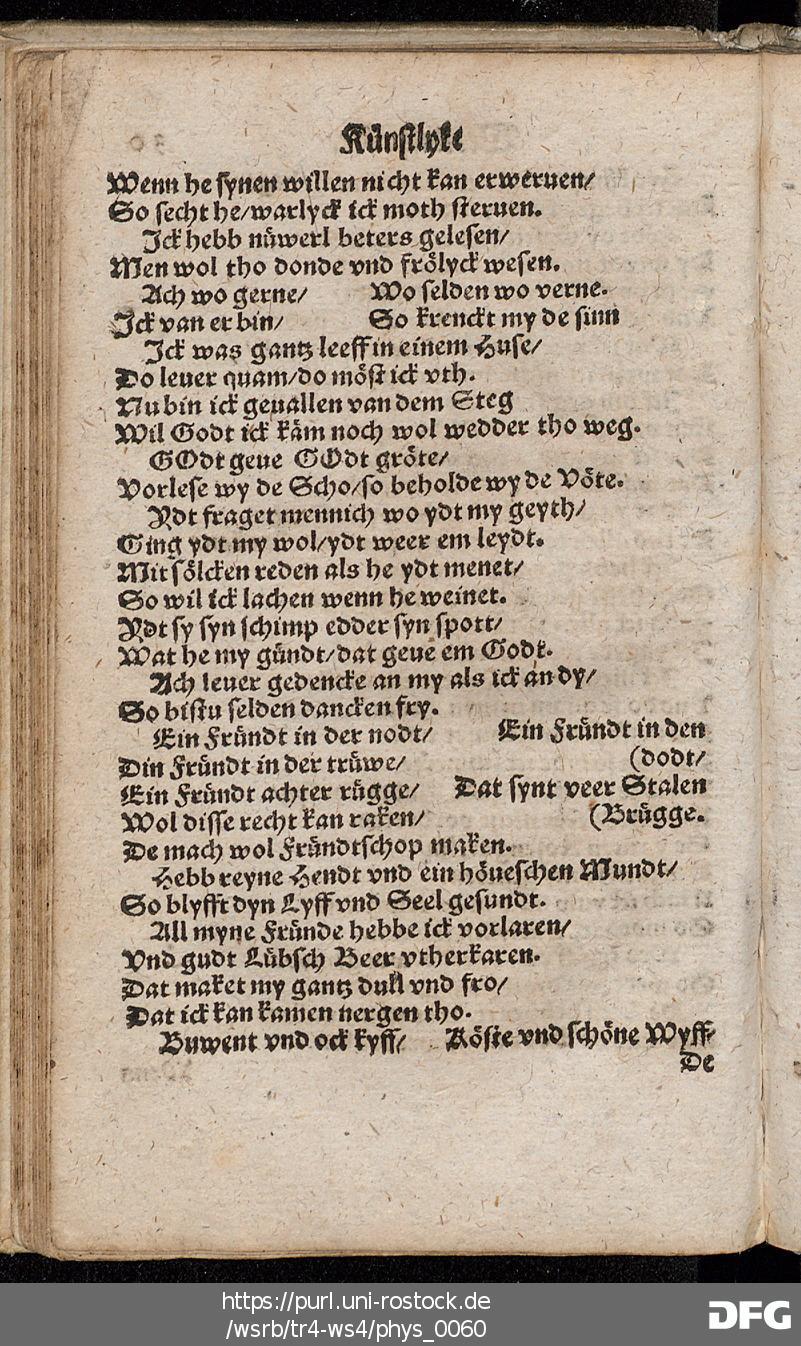 Künstlyke
Wenn he synen willen nicht kan erweruen/
So secht he/warlyck ick moth steruen.
Ick hebb nüwerl beters gelesen/
Men wol tho donde vnd frölyck wesen.
Ach wo gerne/ Wo selden wo verne.
Ick van er bin/ So krenckt my de sinn
Ick was gantz leeff in einem Huse/
Do leuer quam/do möst ick vth.
Nu bin ick geuallen van dem Steg
Wil Godt ick käm noch wol wedder tho weg.
GOdt geue GOdt gröte/
Vorlese wy de Scho/so beholde wy de Vöte.
Ydt fraget mennich wo ydt my geyth/
Ging ydt my wol/ydt weer em leydt.
Mit sölcken reden als he ydt menet/
So wil ick lachen wenn he weinet.
Ydt sy syn schimp edder syn spott/
Wat he my gündt/dat geue em Godt.
Ach leuer gedencke an my als ick an dy/
So bistu selden dancken fry.
Ein Fründt in der nodt/ Ein Fründt in den
Din Fründt in der trüwe/ (dodt/
Ein Fründt achter rügge/ Dat synt veer Stalen
Wol disse recht kan raken/ (Brügge.
De mach wol Fründtschop maken.
Hebb reyne Hendt vnd ein höueschen Mundt/
So blyfft dyn Lyff vnd Seel gesundt.
All myne Fründe hebbe ick vorlaren/
Vnd gudt Lübsch Beer vtherkaren.
Dat maket my gantz dull vnd fro/
Dat ick kan kamen nergen tho.
Buwent vnd ock kyff/ Köste vnd schöne Wyff/
De
https://purl.uni-rostock.de
/wsrb/tr4-ws4/phys_0060
DFG